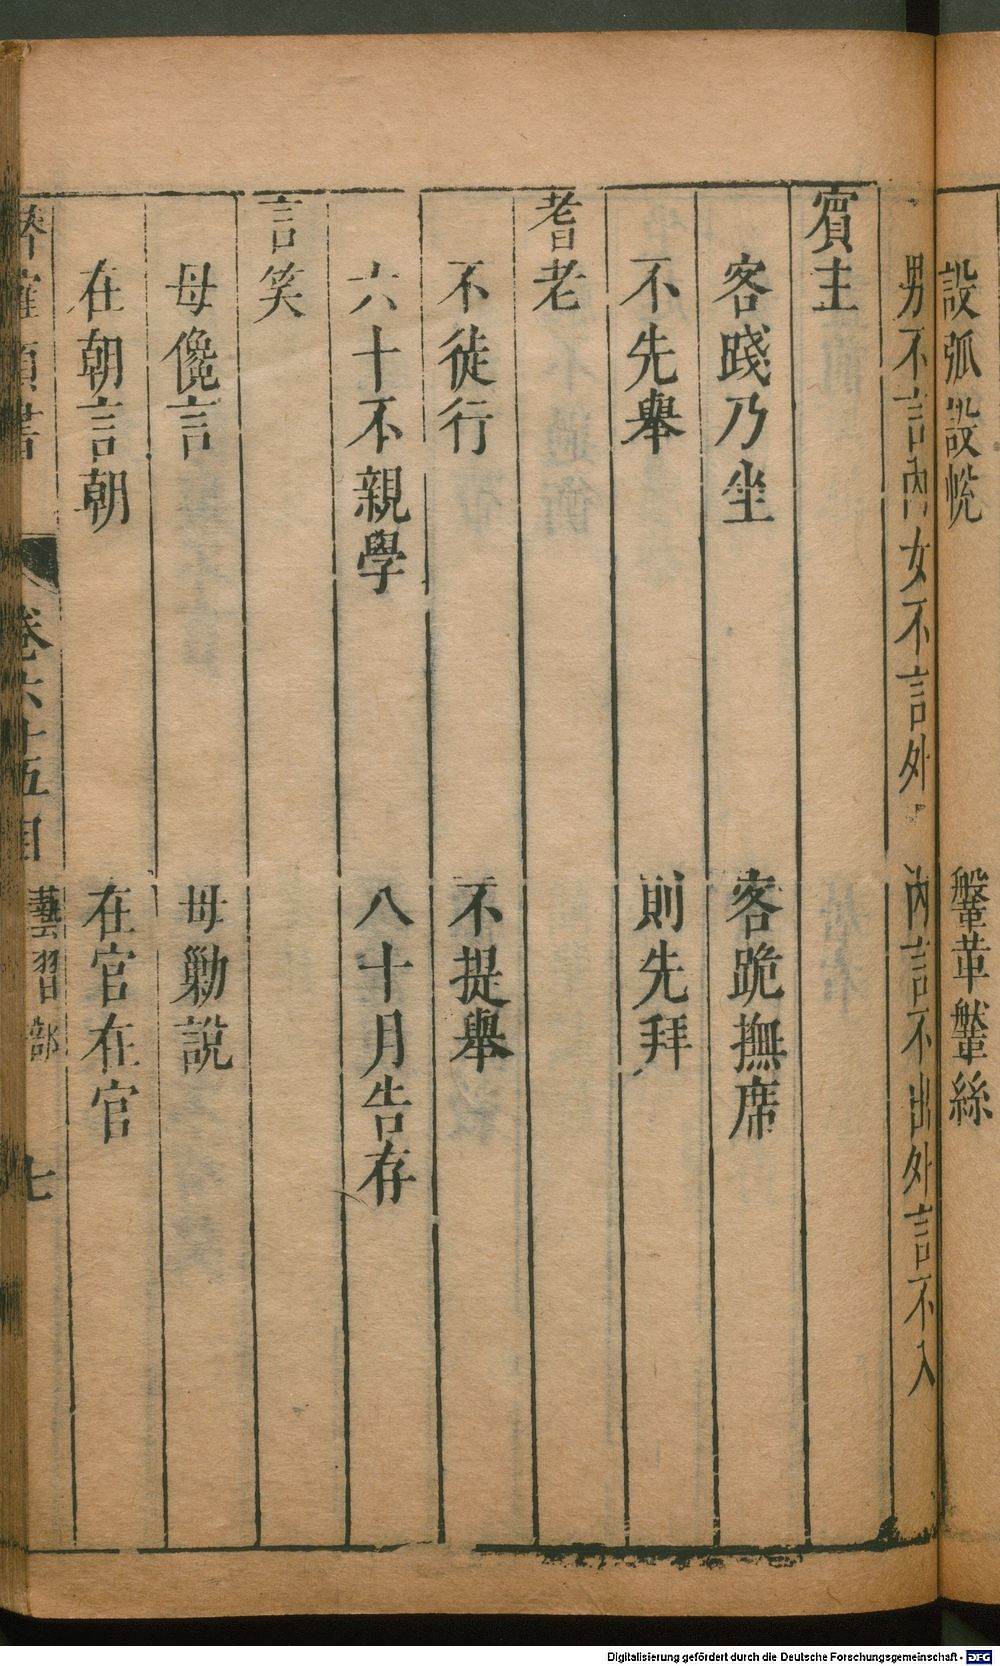 設弧設帨　鞶革鞶絲
男不言內女不言外　內言不出外言不入
賓主
客踐乃坐　客跪撫席
不先舉　則先拜
耆老
不徒行　不提舉
六十不親學　八十月告存
言笑
母儳言　母勦說
在朝言朝　在官在官
類書　卷六十五目　藝習部　七
Digitalisierung gefördert durch die Deutsche Forschungsgemeinschaft - DFG